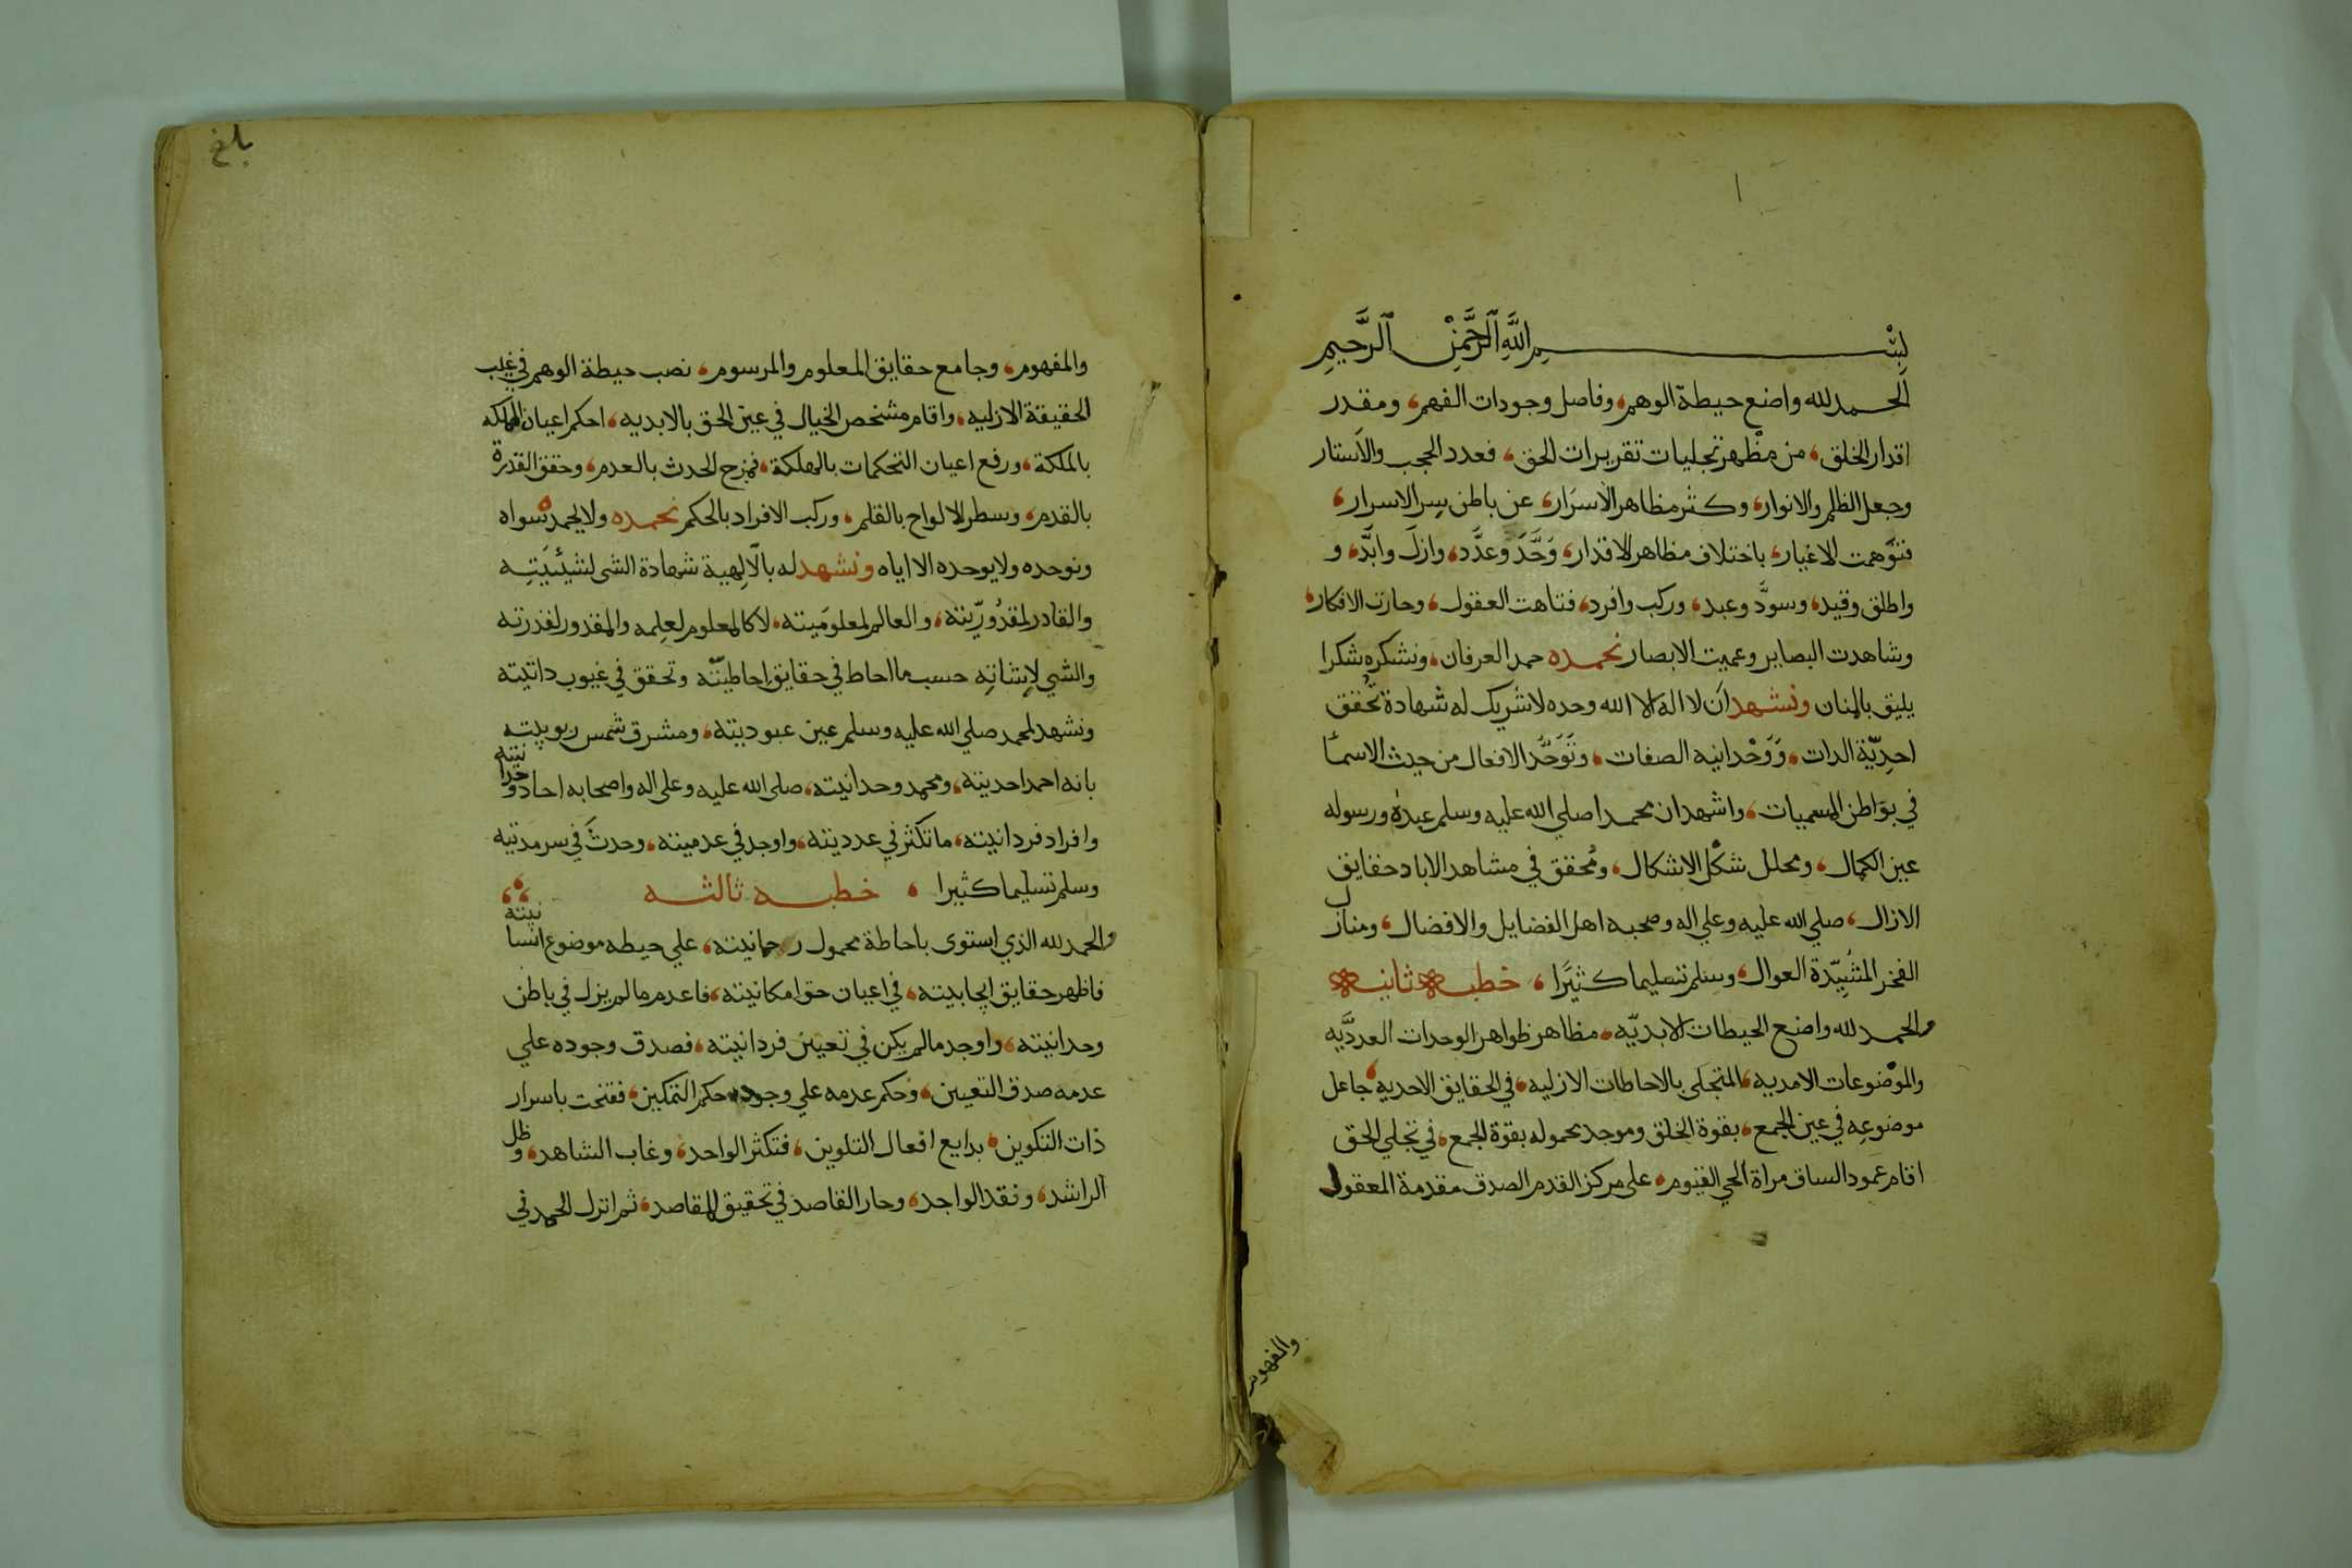 بسم الله الرحمن الرحيم
الحمد لله واضع حيطة الوهم، وفاصل وجودات الفهم، ومقدر
اقدار الخلق، من مظهر تجليات تقريرات الحق، فعدد الحجب والاستار
وجعل الظلم والانوار، وكثر مظاهر الاسرار، عن باطن سر الاسرار،
فتوهمت الاغيار، باختلاف مظاهر الاقدار، وَحَّدَ وعدَّد، وازل وابَّد، و
واطلق وقيد، وسوَّد وعبد، وركب وافرد، فتاهت العقول، وحارت الافكار،
وشاهدت البصاير وعميت الابصار نحمده حمد العرفان، ونشكره شكرا
يليق بالمنان ونشهد ان لا اله الا الله وحده لا شريك له شهادة تحقق
احدِيّة الدات، وَوَحْدانيه الصفات، وتَوَحَّد الافعال من حيث الاسما
في بواطن المسميات، واشهد ان محمدا صلي الله عليه وسلم عبده ورسوله
عين الكمال، ومحلل شكل الاشكال، ومُحقق في مشاهد الاباد حقايق
الازال، صلي الله عليه وعلي اله وصحبه اهل الفضايل والافضال، ومنازل
الفخر المشيدة العوال، وسلم تسليما كثيرا، خطبه ثانيه
والحمد لله واضع الحيطات الابديّه، مظاهر ظواهر الوحدات العدديَّه
والموضوعات الامديه، المتجلى بالاحاطات الازليه، في الحقايق الاحديه، جاعل
موضوعه في عين الجمع، بقوة الخلق وموجد محموله بقوة الجمع، في تجلي الحق
اقام عمود الساق مراة الحي القيوم، على مركز القدم الصدق مقدمة المعقول
والمفهوم
والمفهوم، وجامع حقايق المعلوم والمرسوم، نصب حيطة الوهم في غيب
الحقيقة الازليه، واقام مشخص الخيال في عين الحق بالابديه، احكم اعيان المملكه
بالملكة، ورفع اعيان التحكمات بالهلكة، فمزج الحدث بالعدم، وحقق القدرة
بالقدم، وسطر الالواح بالقلم، وركب الافراد بالحكم نحمده ولا يحمد سواه
ونوحده ولا يوحده الا اياه ونشهد له بالالهية شهادة الشي لشيئيَتِه
والقادر لمقدُورِيّته، والعالم لمعلوميته، لا كالمعلوم لعلمه والمقدور لقدرته
والشي لاشاته حسب ما احاط في حقايق احاطيته وتحقق في غيوب داتيته
ونشهد لمحمد صلي الله عليه وسلم عين عبوديته، ومشرق شمس ربوبيته
بانه احمد احديته، ومحمد وحدانيته، صلى الله عليه وعلى اله واصحابه احاد وحدانيته
وافراد فردانيته، ما تكثر في عدديته، واوجد في عدميته، وحدث في سرمديته
وسلم تسليما كثيرا، خطبه ثالثه
والحمد لله الذي استوى باحاطة محمول رحمانيته، علي حيطه موضوع انسانيته
فاظهر حقايق ايجابيته، في اعيان حق امكانيته، فاعدم ما لم يزل في باطن
وحدانيته، واوجد ما لم يكن في تعين فردانيته، فصدق وجوده علي
عدمه صدق التعيين، وحكم عدمه علي وجوده حكم التمكين، ففتحت باسرار
ذات التكوين، بدايع افعال التلوين، فتكثر الواحد، وغاب الشاهد، وظل
الراشد، ونقد الواجد، وحار القاصد في تحقيق المقاصد، ثم انزل الحمد في
بلغ